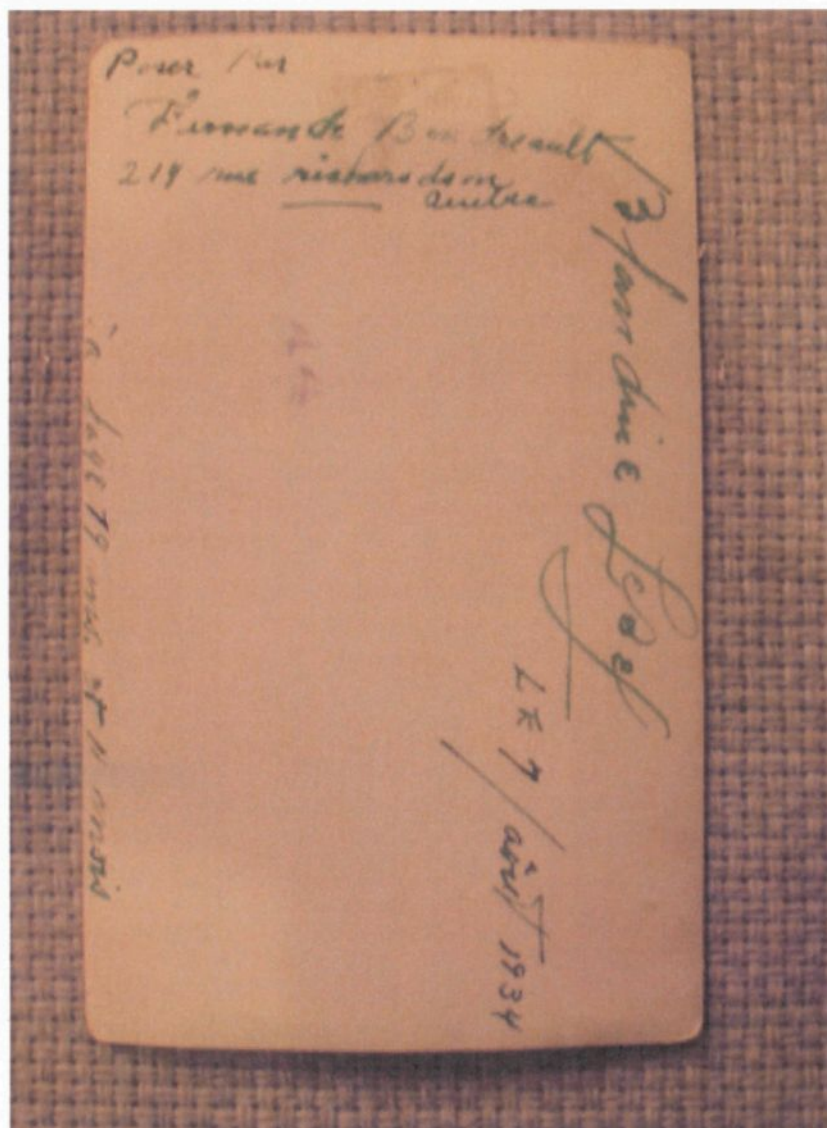 Poser Par
Fernande Boudreault
219 rue richardson
Quebec
Blandine Label
LE 7 août 1934
à l'age 19 ans et 11 mois